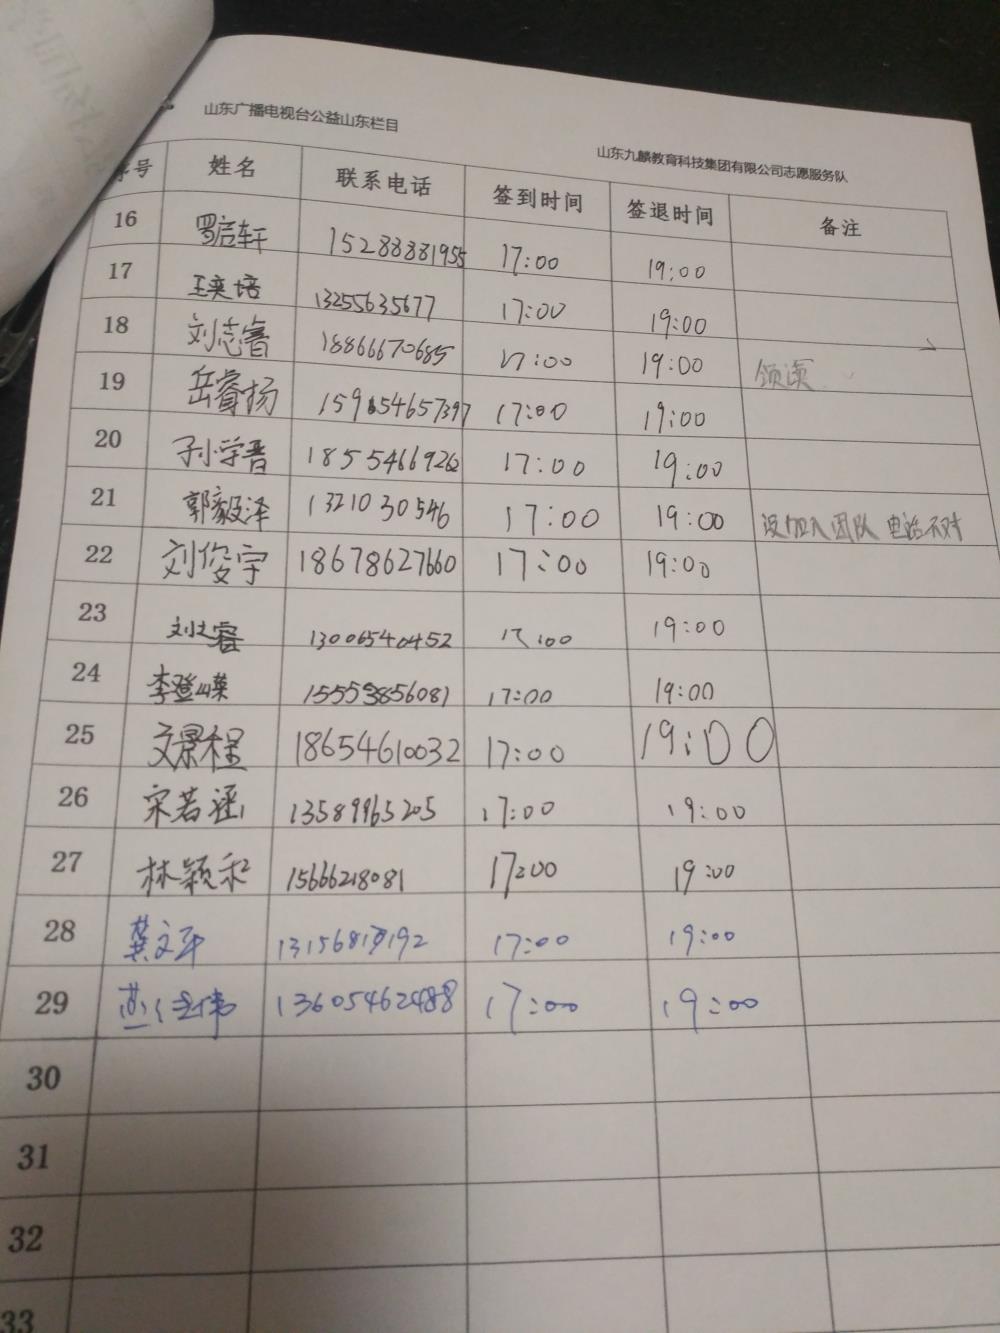 山东广播电视台公益山东栏目
山东九麟教育科技集团有限公司志愿服务队
序号 姓名 联系电话 签到时间 签退时间 备注
16 罗启轩 15288881955 17:00 19:00
17 王奕培 13255635677 17:00 19:00
18 刘志睿 18866670685 17:00 19:00 领读
19 岳睿扬 17:00 19:00
20 18554669262 17:00 19:00
21 郭毅泽 1321030546 17:00 19:00 没加入团队 电话不对
22 刘俊宇 18678627660 17:00 19:00
23 13006540452 19:00
24 李登嵘 15553856081 17:00 19:00
25 文景程 18654610032 17:00 19:00
26 宋若涵 13589965205 17:00 19:00
27 林颖和 15666218081 17:00 19:00
28 龚文平 17:00 19:00
29 13605462488 17:00 19:00
30
31
32
33